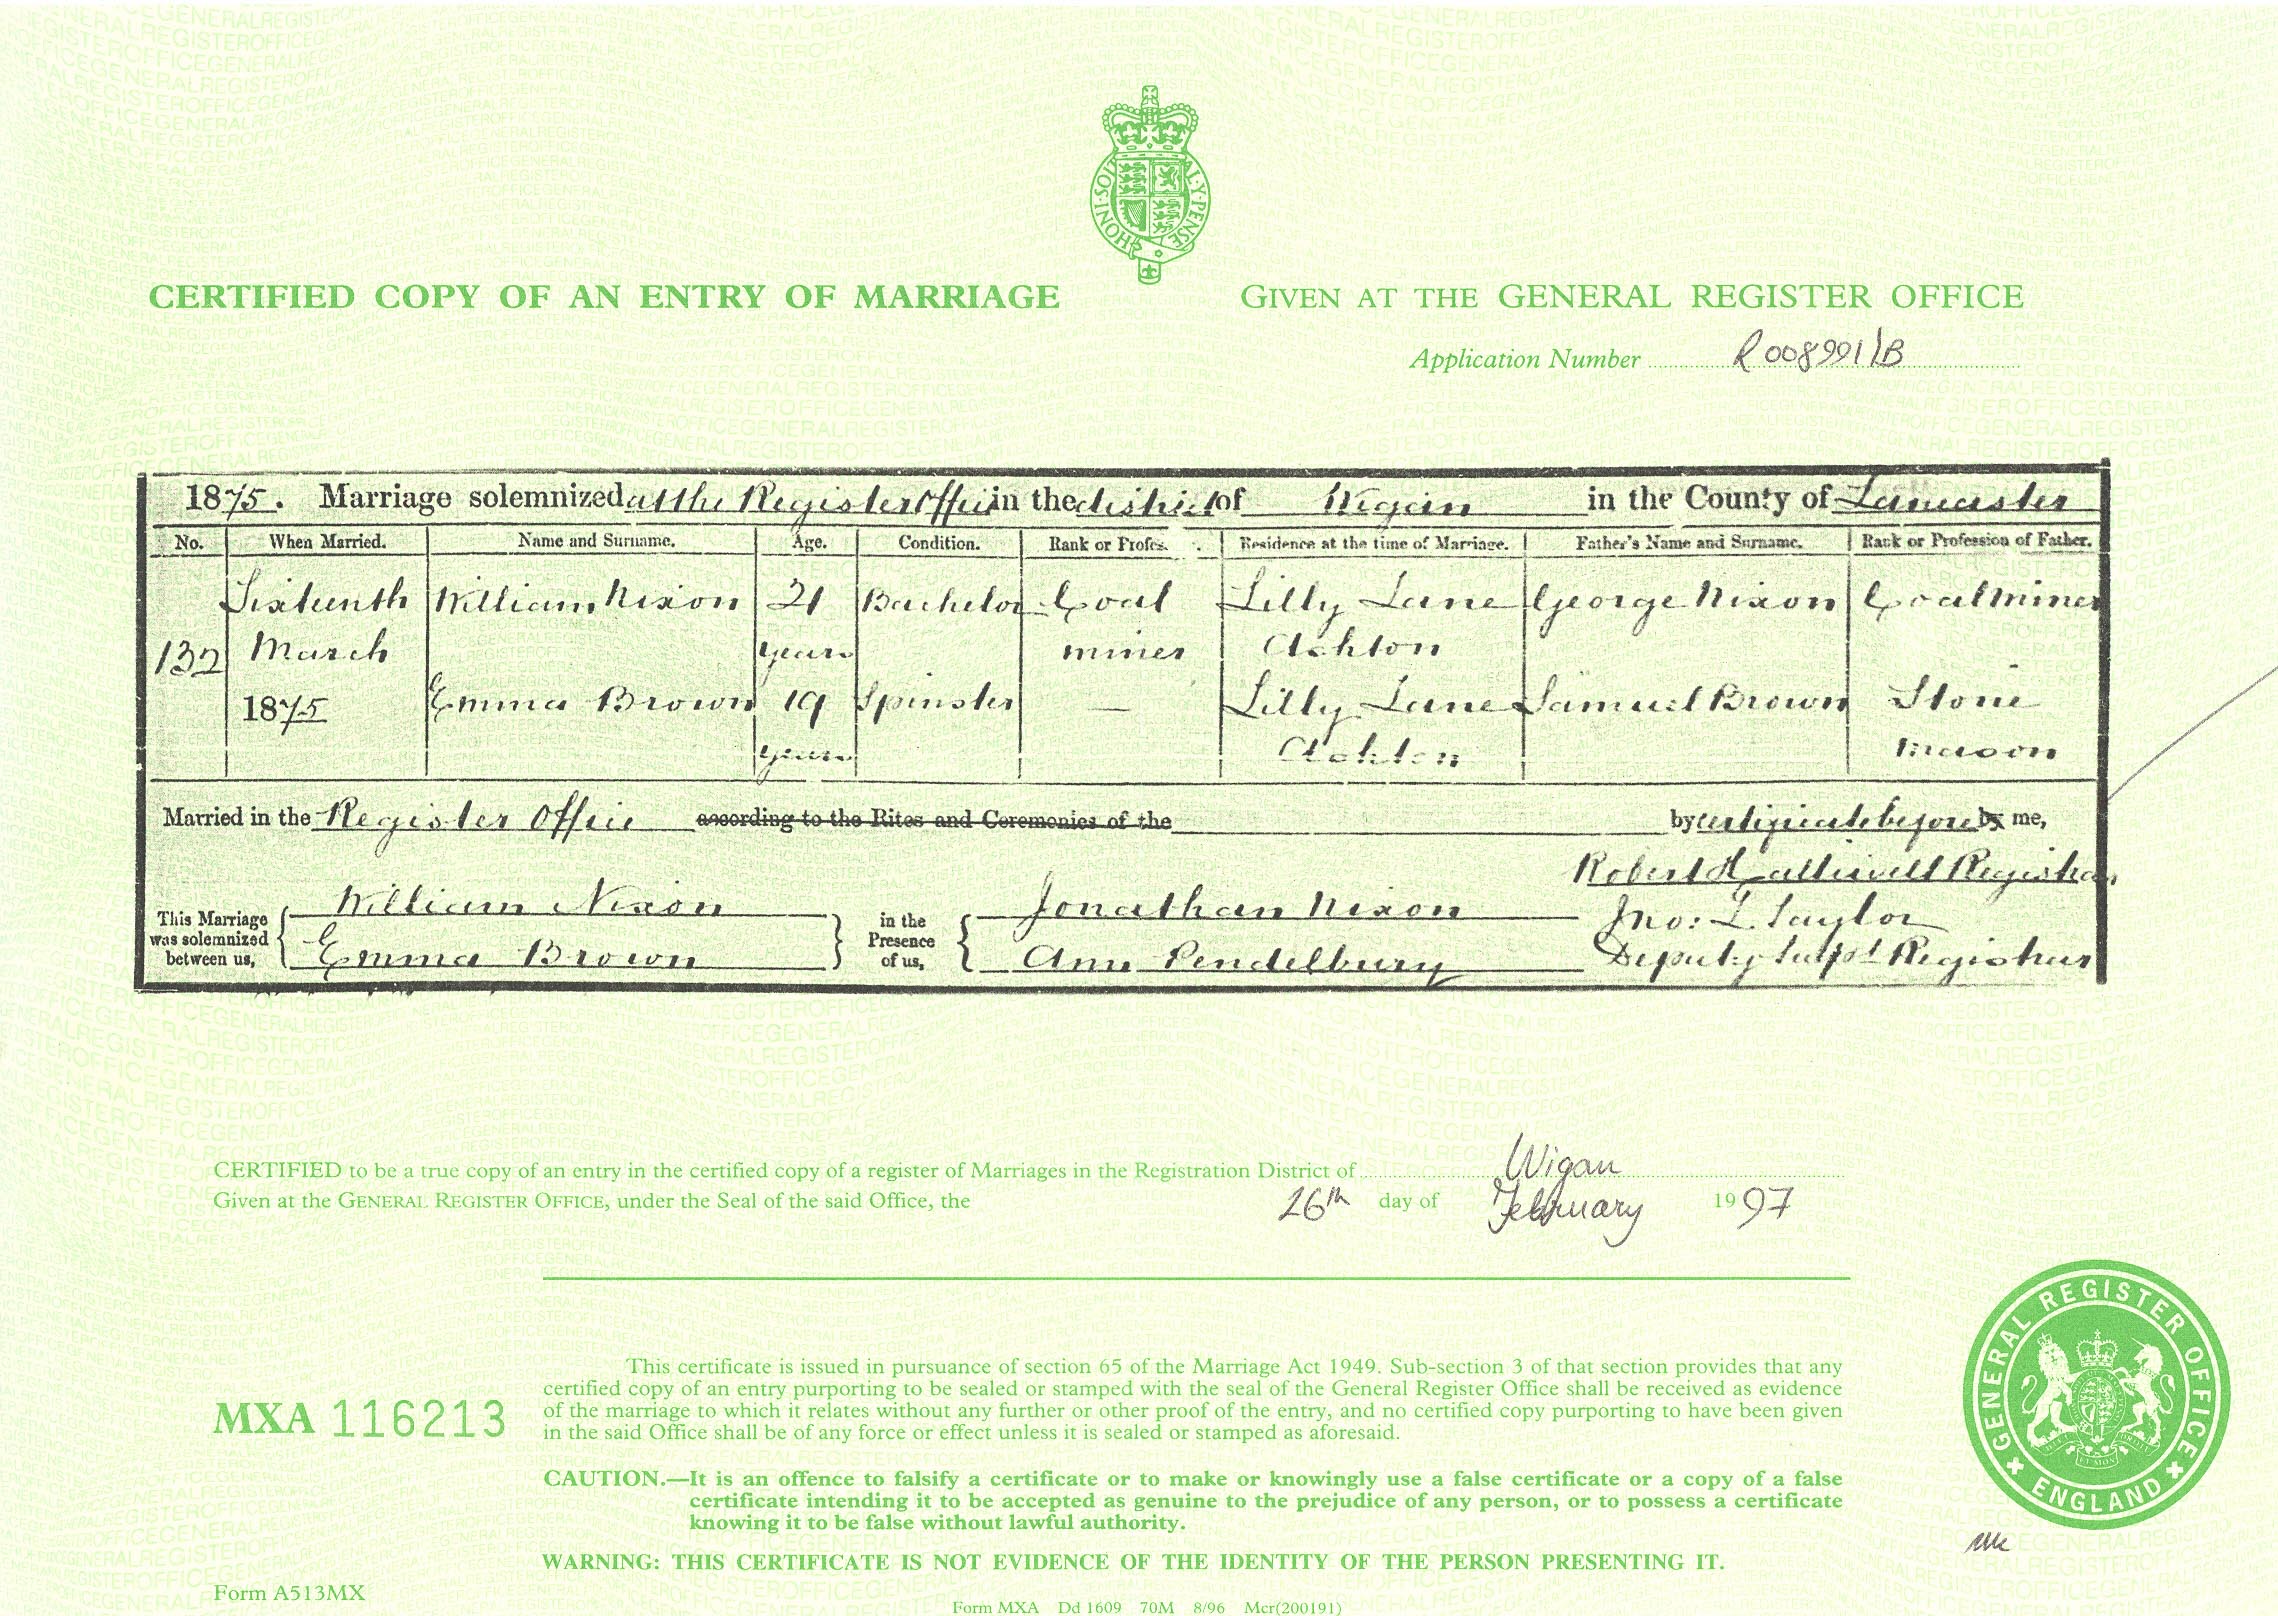 HONI·SOIT·Q AL·Y·PENSE
CERTIFIED COPY OF AN ENTRY OF MARRIAGE
GIVEN AT THE GENERAL REGISTER OFFICE
Application Number R008991/B
1875. Marriage solemnized at the Register Office in the district of Wigan in the County of Lancaster
No. When Married. Name and Surname. Age. Condition. Rank or Profes. Residence at the time of Marriage. Father's Name and Surname. Rank or Profession of Father.
Sixteenth William Nixon 21 Bachelor Coal Lilly Lane George Nixon Coal miner
132 March years miner Ashton
1875 Emma Brown 19 Spinster — Lilly Lane Samuel Brown Stone
years Ashton mason
Married in the Register Office according to the Rites and Ceremonies of the by certificate before by me,
Robert Halliwell Registrar
This Marriage was solemnized between us, William Nixon in the Presence of us, Jonathan Nixon Jno: L Taylor
Emma Brown Ann Pendelbury Deputy Supt Registrar
CERTIFIED to be a true copy of an entry in the certified copy of a register of Marriages in the Registration District of Wigan
Given at the GENERAL REGISTER OFFICE, under the Seal of the said Office, the 26th day of February 1997
This certificate is issued in pursuance of section 65 of the Marriage Act 1949. Sub-section 3 of that section provides that any
certified copy of an entry purporting to be sealed or stamped with the seal of the General Register Office shall be received as evidence
of the marriage to which it relates without any further or other proof of the entry, and no certified copy purporting to have been given
in the said Office shall be of any force or effect unless it is sealed or stamped as aforesaid.
MXA 116213
CAUTION.—It is an offence to falsify a certificate or to make or knowingly use a false certificate or a copy of a false
certificate intending it to be accepted as genuine to the prejudice of any person, or to possess a certificate
knowing it to be false without lawful authority.
WARNING: THIS CERTIFICATE IS NOT EVIDENCE OF THE IDENTITY OF THE PERSON PRESENTING IT.
GENERAL REGISTER OFFICE
ENGLAND
Form A513MX
Form MXA Dd 1609 70M 8/96 Mcr(200191)